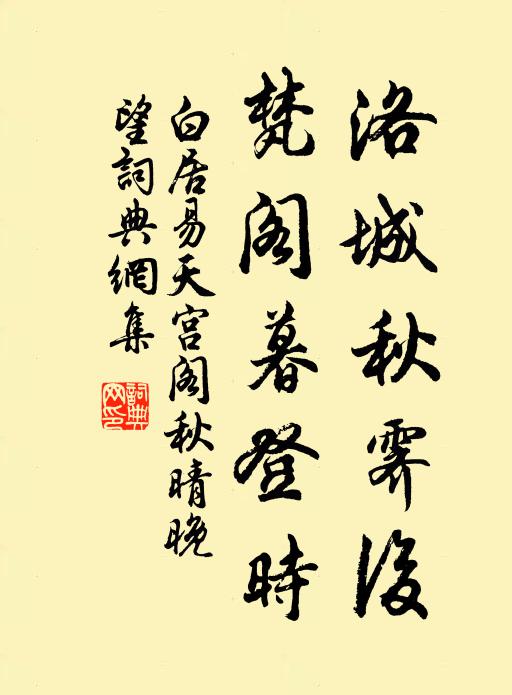 洛城秋霽後
梵阁暮登時
白居易天宫阁秋晴晚
望詞典網集
詞典网印